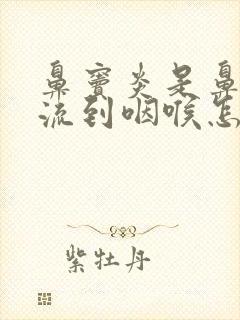 鼻窦炎是鼻
流到咽喉怎
紫牡丹